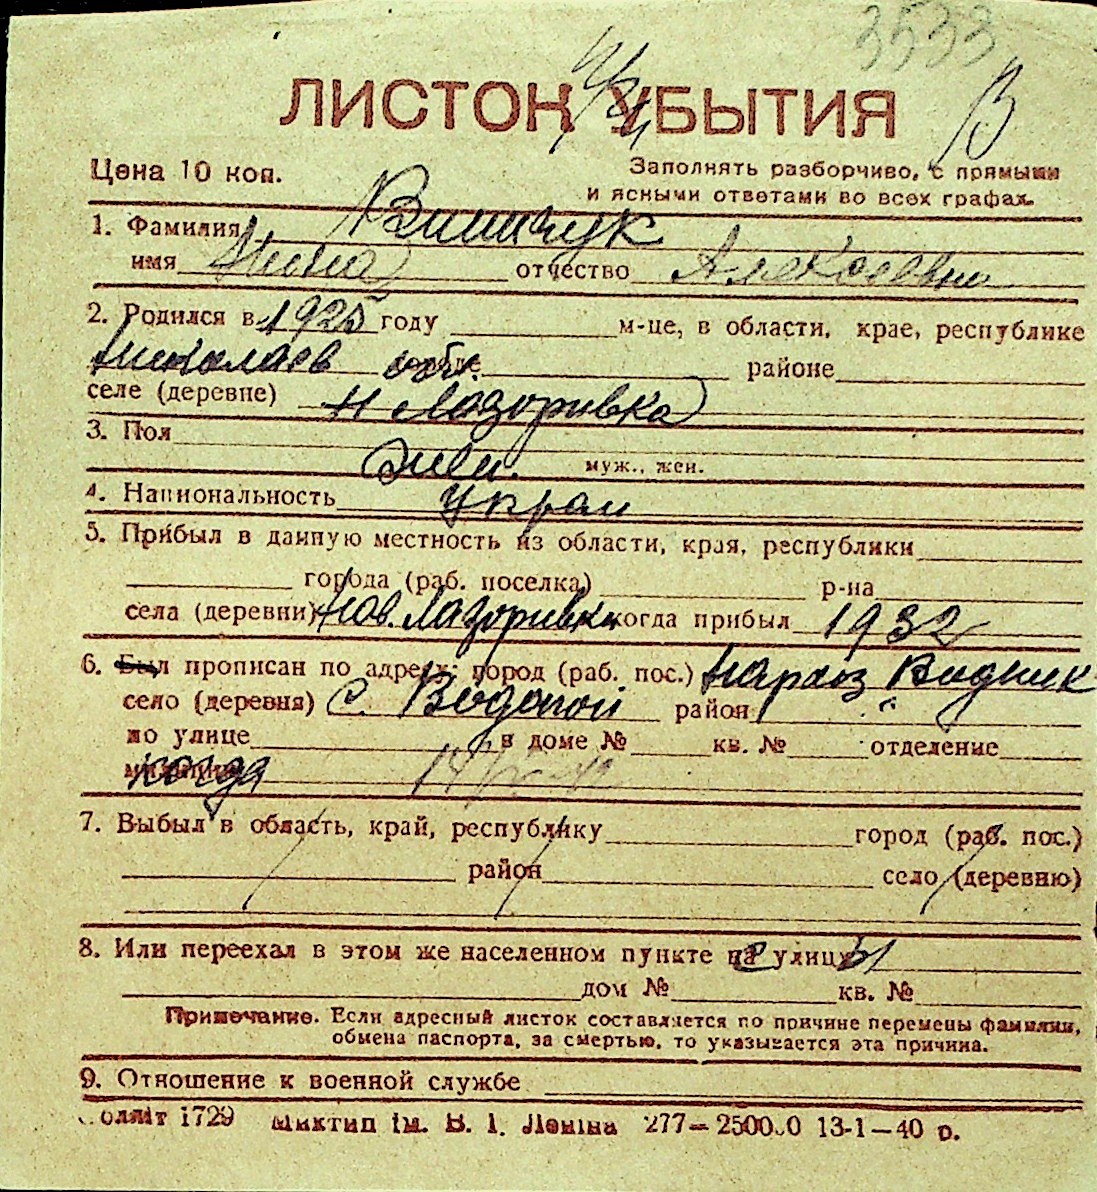 3533
ЛИСТОК УБЫТИЯ
В
Цена 10 коп.
Заполнять разборчиво, с прямыми
и ясными ответами во всех графах.
1. Фамилия
имя Нина отчество Алексеевна
2. Родился в 1925 году м-це, в области, крае, республике
Николаев обл. районе
селе (деревне) Н Лазоривка
3. Пол
Жен. муж., жен.
4. Национальность Украин
5. Прибыл в данную местность из области, края, республики
города (раб. поселка) р-на
села (деревни) Нов. Лазоривки когда прибыл 1932
6. Был прописан по адресу: город (раб. пос.)
село (деревня) с. Водопой район
по улице в доме № кв. № отделение
когда
7. Выбыл в область, край, республику город (раб. пос.)
район село (деревню)
8. Или переехал в этом же населенном пункте на улицу
дом № кв. №
Примечание. Если адресный листок составляется по причине перемены фамилии,
обмена паспорта, за смертью, то указывается эта причина.
9. Отношение к военной службе
1729 Миктип ім. В. І. Леніна 277— 13-1—40 р.